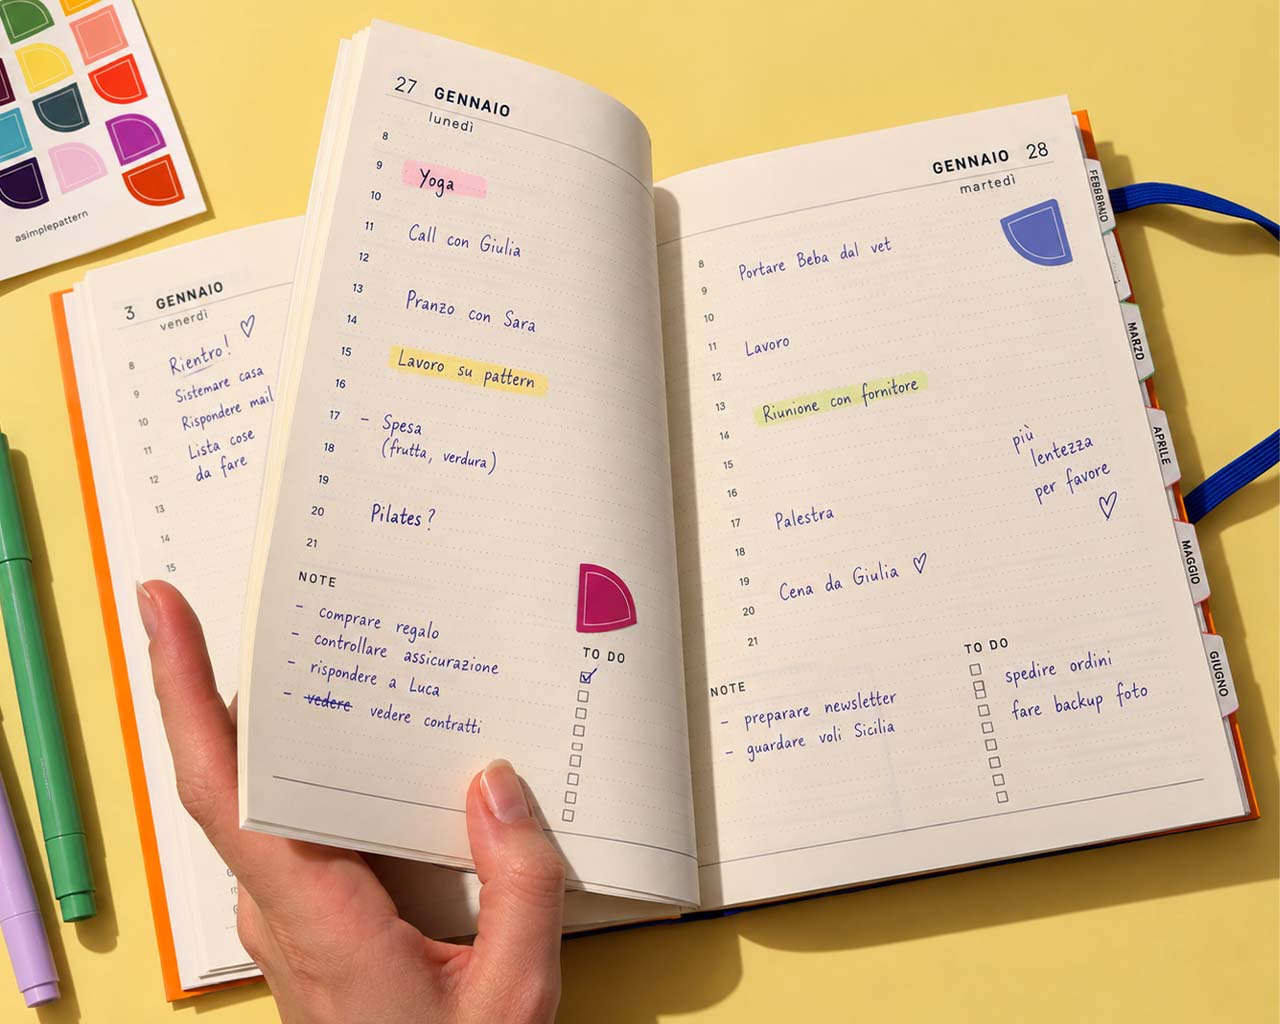 asimplepattern
3 GENNAIO
venerdì
8
Rientro!
9
Sistemare casa
10
Rispondere mail
11
Lista cose
da fare
12
13
14
15
27 GENNAIO
lunedì
8
9
Yoga
10
11
Call con Giulia
12
13
Pranzo con Sara
14
15
Lavoro su pattern
16
17
- Spesa
(frutta, verdura)
18
19
20
Pilates?
21
NOTE
- comprare regalo
- controllare assicurazione
- rispondere a Luca
- vedere vedere contratti
TO DO
GENNAIO 28
martedì
8
Portare Beba dal vet
9
10
11
Lavoro
12
13
Riunione con fornitore
14
15
16
17
Palestra
18
19
Cena da Giulia
20
21
più
lentezza
per favore
NOTE
- preparare newsletter
- guardare voli Sicilia
TO DO
spedire ordini
fare backup foto
MARZO
APRILE
MAGGIO
GIUGNO